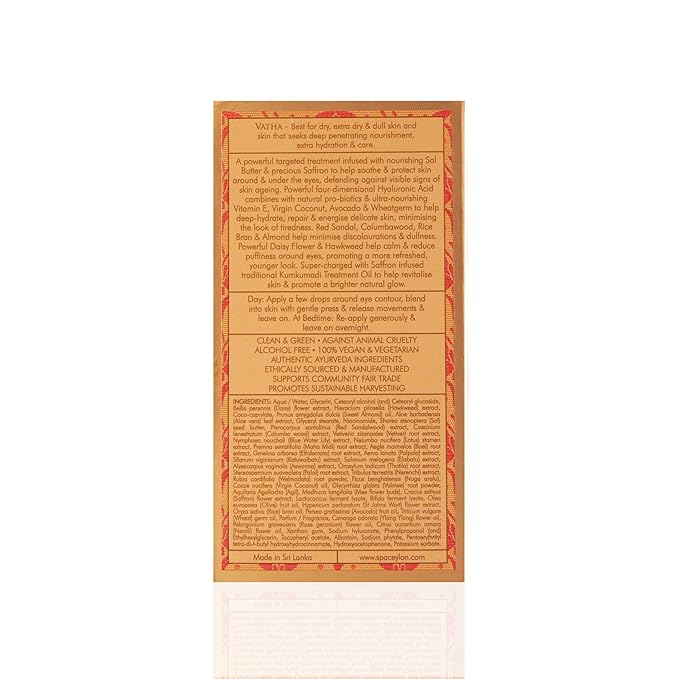 VATHA - Best for dry, extra dry & dull skin and
skin that seeks deep penetrating nourishment,
extra hydration & care.
A powerful targeted treatment infused with nourishing Sal
Butter & precious Saffron to help soothe & protect skin
around & under the eyes, defending against visible signs of
skin ageing. Powerful four-dimensional Hyaluronic Acid
combines with natural pro-biotics & ultra-nourishing
Vitamin E, Virgin Coconut, Avocado & Wheatgerm to help
deep-hydrate, repair & energise delicate skin, minimising
the look of tiredness. Red Sandal, Calumbawood, Rice
Bran & Almond help minimise discolourations & dullness.
Powerful Daisy Flower & Hawkweed help calm & reduce
puffiness around eyes, promoting a more refreshed,
younger look. Super-charged with Saffron infused
traditional Kumkumadi Treatment Oil to help revitalise
skin & promote a brighter natural glow.
Day: Apply a few drops around eye contour, blend
into skin with gentle press & release movements &
leave on. At Bedtime: Re-apply generously &
leave on overnight.
CLEAN & GREEN • AGAINST ANIMAL CRUELTY
ALCOHOL FREE • 100% VEGAN & VEGETARIAN
AUTHENTIC AYURVEDA INGREDIENTS
ETHICALLY SOURCED & MANUFACTURED
SUPPORTS COMMUNITY FAIR TRADE
PROMOTES SUSTAINABLE HARVESTING
INGREDIENTS: Aqua / Water, Glycerin, Cetearyl alcohol (and) Cetearyl glucoside,
Bellis perennis (Daisy) flower extract, Hieracium pilosella (Hawkweed) extract,
Coco-caprylate, Prunus amygdalus dulcis (Sweet Almond) oil, Aloe barbadensis
(Aloe vera) leaf extract, Glyceryl stearate, Niacinamide, Shorea stenoptera (Sal)
seed butter, Pterocarpus santalinus (Red Sandalwood) extract, Coscinium
fenestratum (Calumba wood) extract, Vetiveria zizanoides (Vetiver) root extract,
Nymphaea nouchali (Blue Water Lily) extract, Nelumbo nucifera (Lotus) stamen
extract, Premna serratifolia (Maha Midi) root extract, Aegle marmelos (Bael) root
extract, Gmelina arborea (Ethdemata) root extract, Aerva lanata (Polpala) extract,
Slanum viginianum (Katuwalbatu) extract, Solanum melogena (Elabatu) extract,
Alyssicarpus vaginalis (Aswanna) extract, Oroxylum Indicum (Thotila) root extract,
Stereospermum suaveolens (Palal) root extract, Tribulus terrestris (Nerenchi) extract,
Rubia cordifolia (Welmadata) root powder, Ficus benghalensis (Nuga aratu),
Cocos nucifera (Virgin Coconut) oil, Glycyrrhiza glabra (Valmee) root powder,
Aquilaria Agallocha (Agil), Madhuca longifolia (Mee flower buds), Crocus sativus
(Saffron) flower extract, Lactococcus ferment lysate, Bifida ferment lysate, Olea
europaea (Olive) fruit oil, Hypericum perforatum (St Johns Wort) flower extract,
Oryza sativa (Rice) bran oil, Persea gratissima (Avocado) fruit oil, Triticum vulgare
(Wheat) germ oil, Parfum / Fragrance, Cananga odorata (Ylang Ylang) flower oil,
Pelargonium graveolens (Rose geranium) flower oil, Citrus aurantium amara
(Neroli) flower oil, Xanthan gum, Sodium hyaluronate, Phenylpropanol (and)
Ethylhexylglycerin, Tocopheryl acetate, Allantoin, Sodium phytate, Pentaerythrity
tetra-di-t-butyl hydroxyhydrocinnamate, Hydroxyacetophenone, Potassium sorbate.
Made in Sri Lanka
www.spaceylon.com